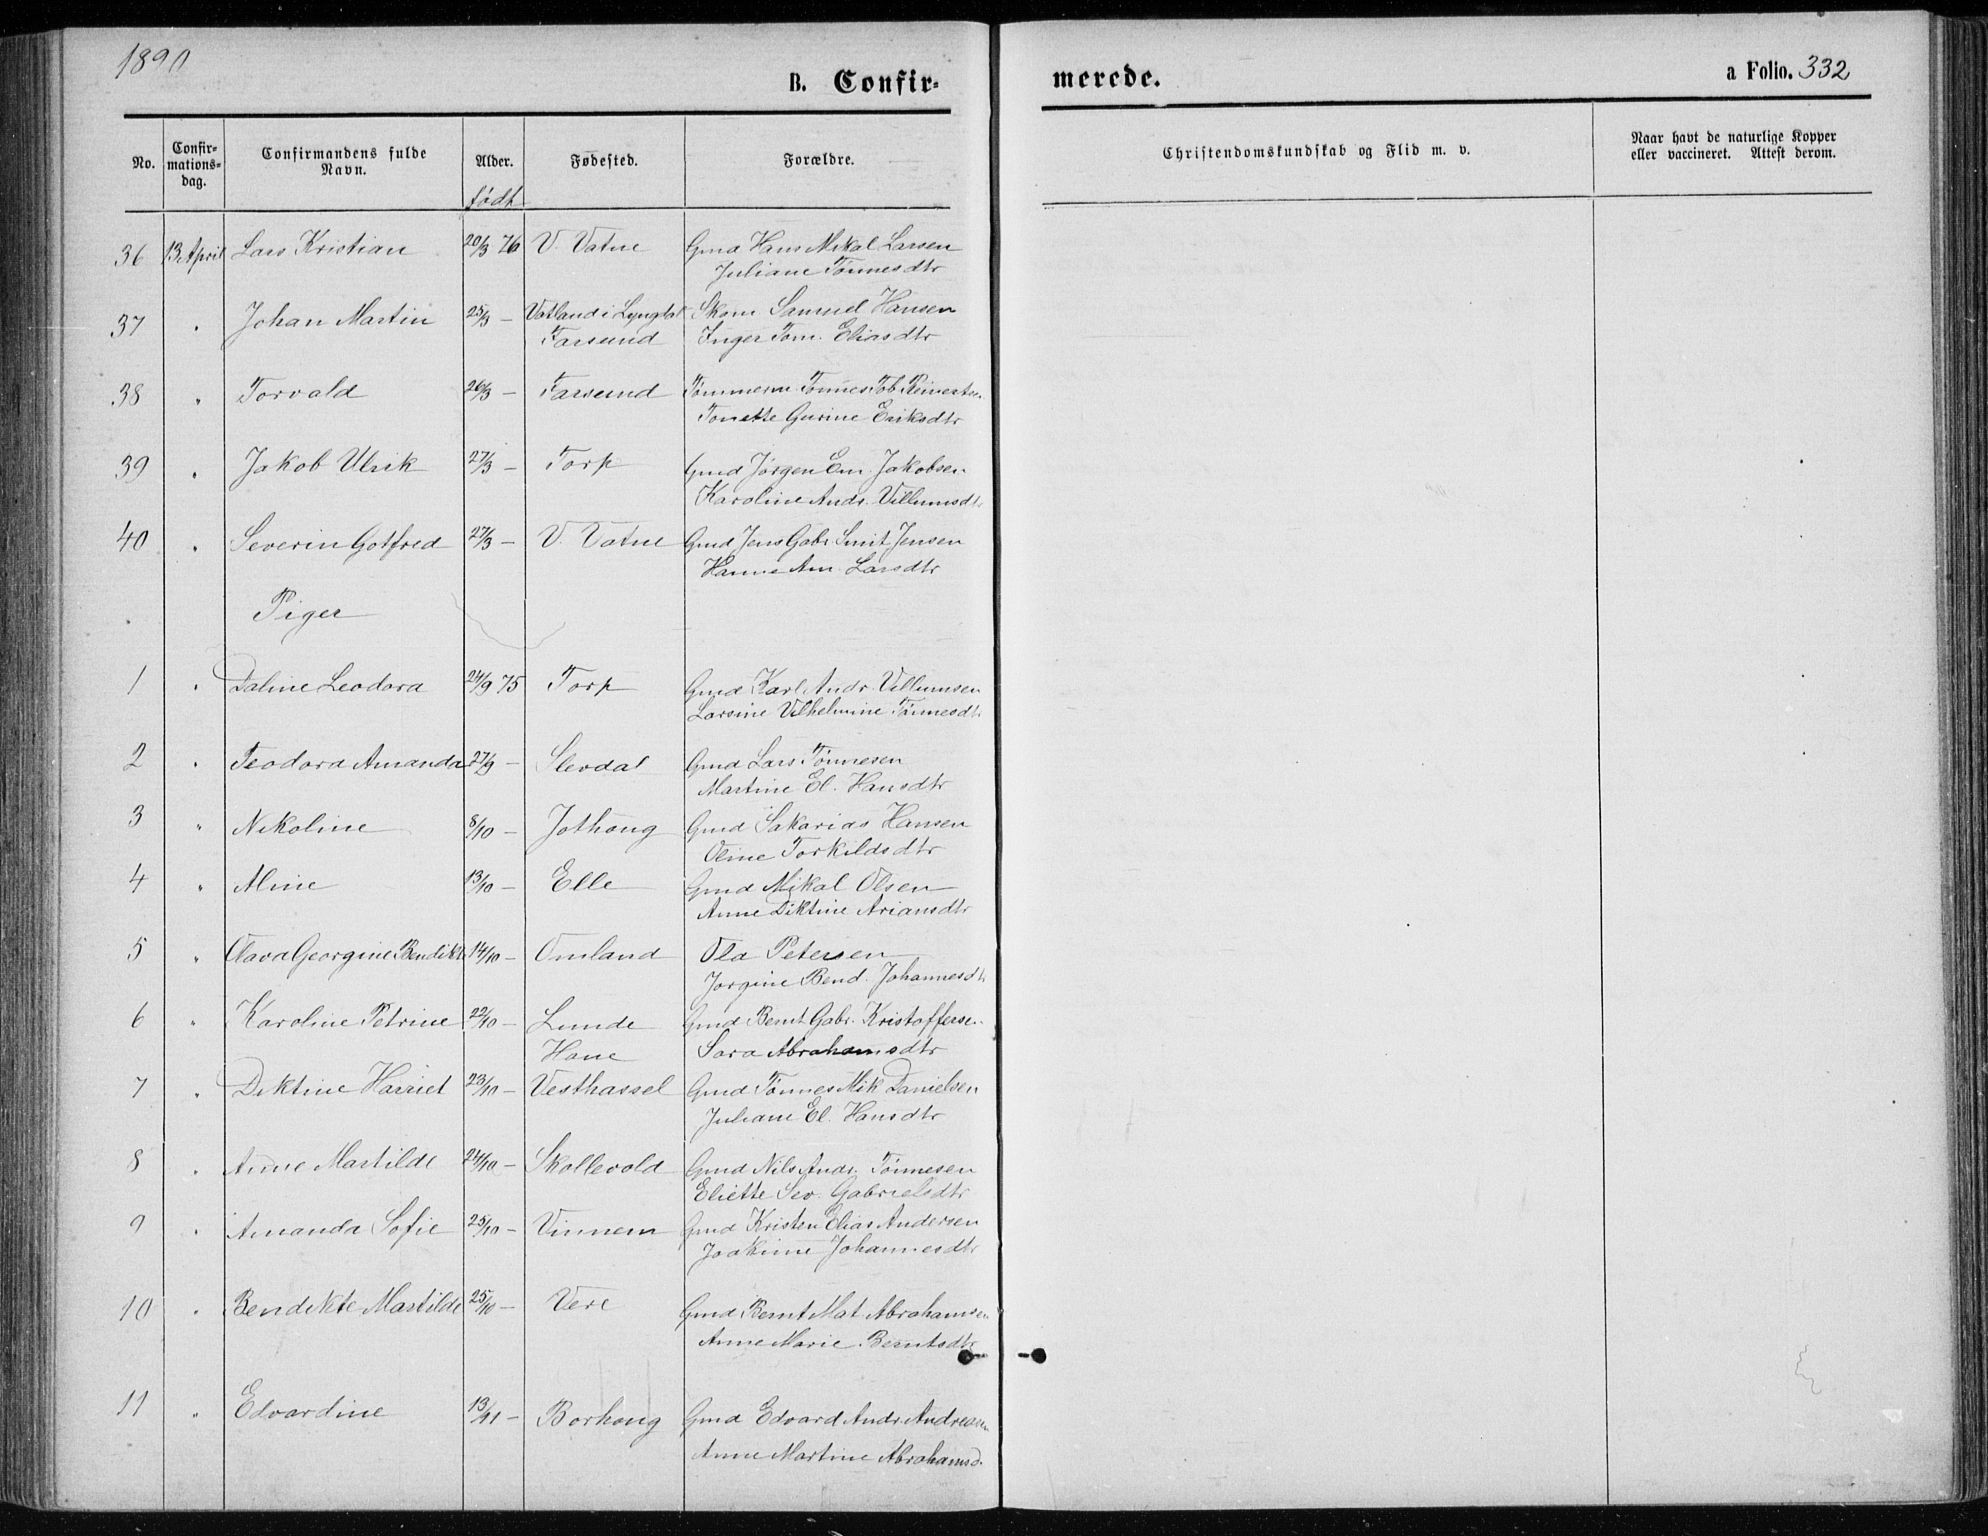 1890
B. Confir-
merede.
a Folio. 332
No. Confir-mations-dag. Confirmandens fulde Navn. Alder. Fødested. Forældre. Christendomskundskab og Flid m. v. Naar havt de naturlige Kopper eller vaccineret. Attest derom.
født
36 13 April Lars Kristian 20/3 76 V. Vatne Gmd Hans Mikal Larsen
Juliane Tønnesdtr
37 " Johan Martin 25/3 — Vatland i Lyngdal Skom Samuel Hansen
Farsund Inger Tom. Eliasdtr
38 " Torvald 26/3 — Farsund Tømmerm. Tønnes Tob. Reinertsen
Tonette Gurine Eriksdtr
39 " Jakob Ulrik 27/3 — Torp Gmd Jørgen Em. Jakobsen
Karoline Andr. Villumsdtr
40 " Severin Gotfred 27/3 — V. Vatne Gmd Jens Gabr. Smit Jensen
Hanne Am. Larsdtr
Piger
1 " Daline Leodora 24/9 75 Torp Gmd Karl Andr. Villumsen
Larsine Vilhelmine Tønnesdtr
2 " Teodora Amanda 27/9 — Slevdal Gmd Lars Tønnesen
Martine El. Hansdtr
3 " Nikoline 8/10 — Jothoug Gmd Sakarias Hansen
Oline Torkildsdtr
4 " Aline 13/10 — Elle Gmd Mikal Olsen
Anne Diktine Ariansdtr
5 " Olava Georgine Bendikte 14/10 — Omland Ola Petersen
Jorgine Bend. Johannesdtr
6 " Karoline Petrine 22/10 — Lunde Gmd Bernt Gabr. Kristoffersen
Hane Sara Abrahamsdtr
7 " Diktine Harriet 23/10 — Vesthassel Gmd Tønnes Mik Danielsen
Juliane El. Hansdtr
8 " Anne Martilde 24/10 — Skollevold Gmd Nils Andr. Tønnesen
Eliette Sev. Gabrielsdtr
9 " Amanda Sofie 25/10 — Vinnem Gmd Kristen Elias Andersen
Joakime Johannesdtr
10 " Bendikte Martilde 25/10 — Vere Gmd Bernt Mat Abrahamsen
Anne Marie Berntsdtr
11 " Edvardine 13/11 — Borhoug Gmd Edvard Andr. Andreasen
Anne Martine Abrahamsd.